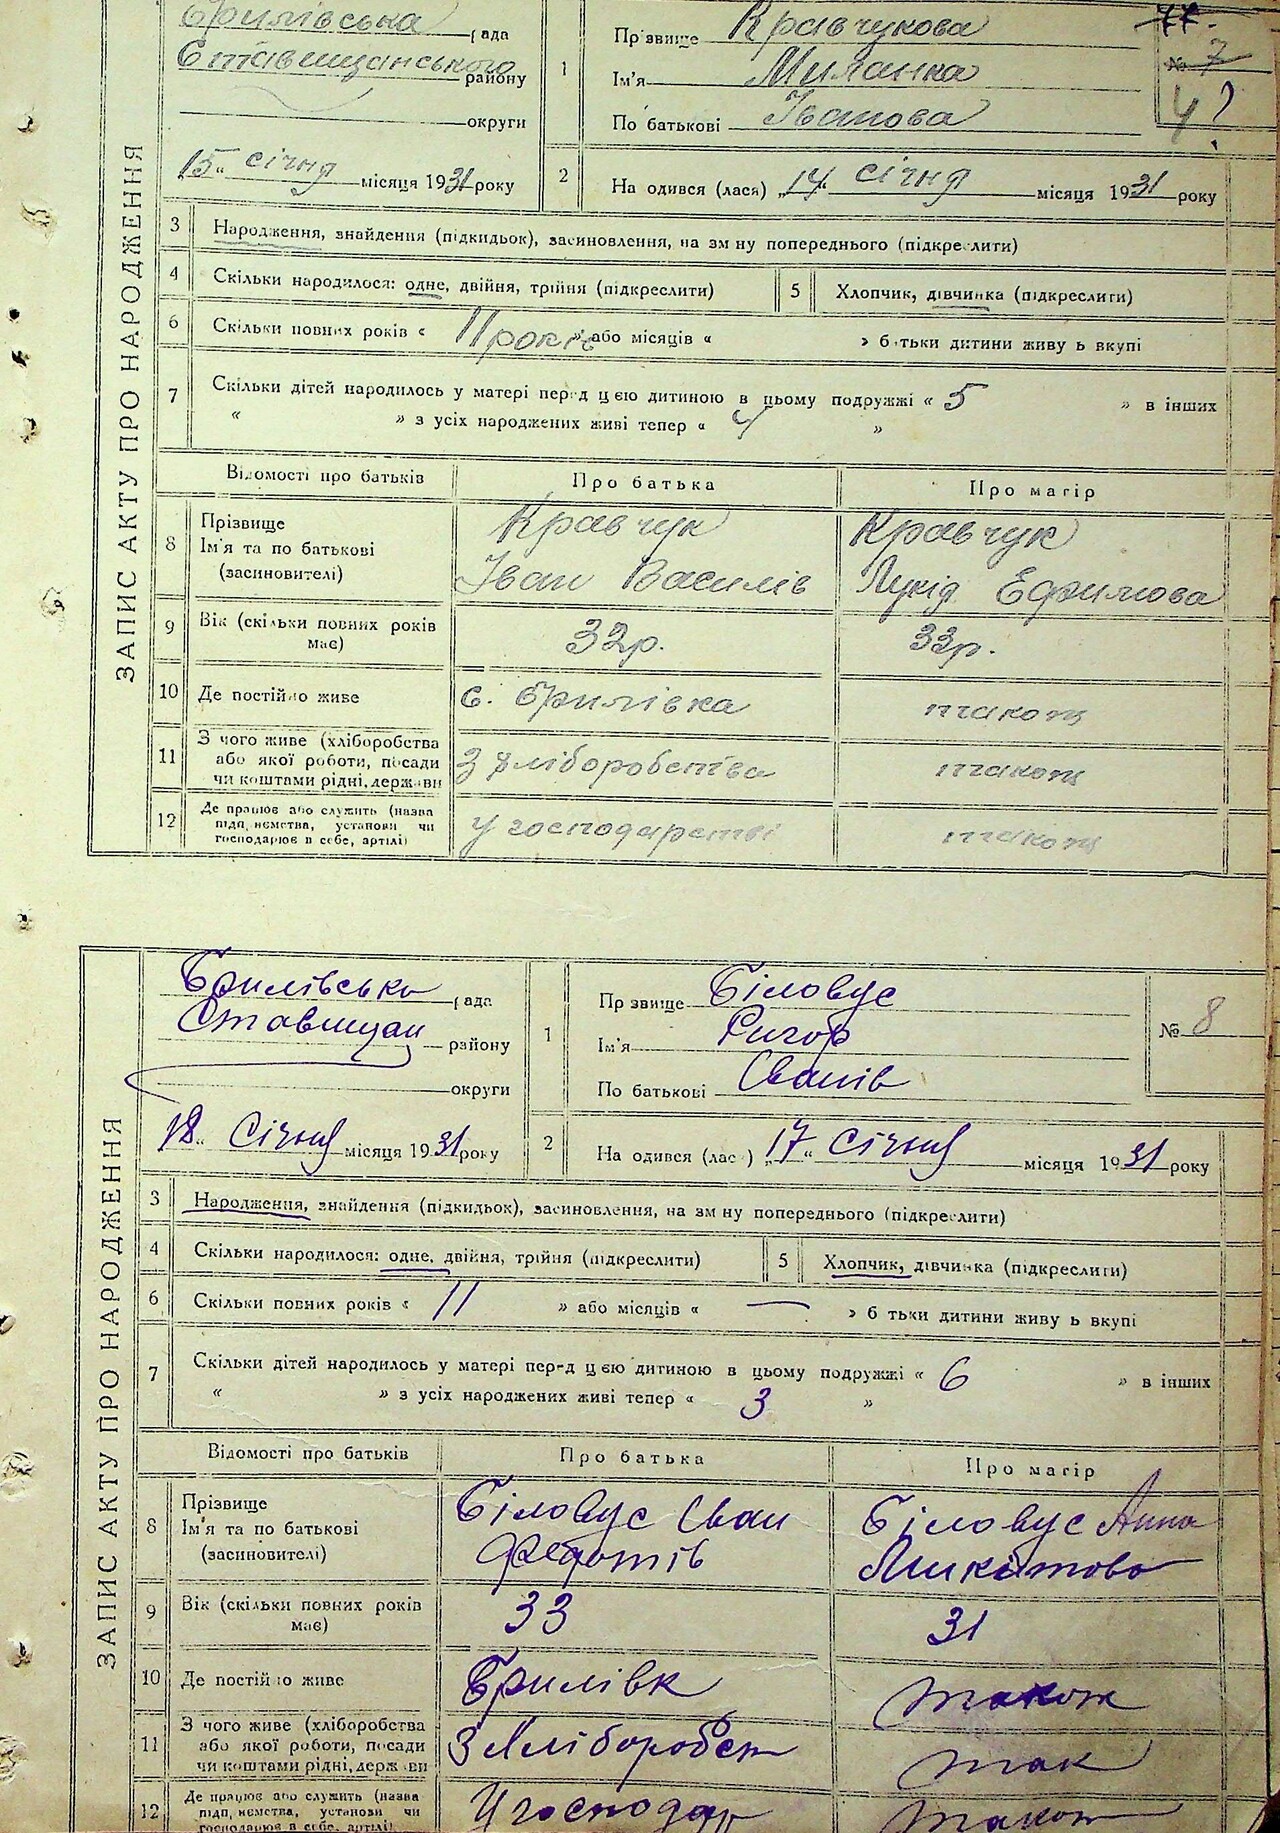 ЗАПИС АКТУ ПРО НАРОДЖЕННЯ
Брилівська рада
Ставищанського району
округи
15 січня місяця 1931 року
1 Прізвище Кравчукова
Ім'я Миланка
По батькові Іванова
77.
№ 7
4?
2 На одився (лася) „14“ січня місяця 1931 року
3 Народження, знайдення (підкидьок), засиновлення, на зм ну попереднього (підкреслити)
4 Скільки народилося: одне, двійня, трійня (підкреслити)
5 Хлопчик, дівчинка (підкреслити)
6 Скільки повних років « 11 років » або місяців « » батьки дитини живу ь вкупі
7 Скільки дітей народилось у матері перед цією дитиною в цьому подружжі « 5 » в інших
« » з усіх народжених живі тепер « 4 »
Відомості про батьків Про батька Про матір
8 Прізвище Кравчук Кравчук
Ім'я та по батькові
(засиновителі) Іван Василів Лукід Ефимова
9 Вік (скільки повних років має) 32р. 33р.
10 Де постійно живе с. Брилівка також
11 З чого живе (хліборобства
або якої роботи, посади
чи коштами рідні, держави З хліборобства також
12 Де працює або служить (назва
підп, иємства, установи чи
господарює в себе, артілі) у господарстві також
ЗАПИС АКТУ ПРО НАРОДЖЕННЯ
Брилівська рада
Ставищан району
округи
18 Січня місяця 1931 року
1 Пр звище Біловус
Ім'я Ригор
По батькові Іванів
№ 8
2 На одився (лас ) „17“ Січня місяця 1931 року
3 Народження, знайдення (підкидьок), засиновлення, на зм ну попереднього (підкреслити)
4 Скільки народилося: одне, двійня, трійня (підкреслити)
5 Хлопчик, дівчинка (підкреслити)
6 Скільки повних років « 11 » або місяців « — » б тьки дитини живу ь вкупі
7 Скільки дітей народилось у матері перед цією дитиною в цьому подружжі « 6 » в інших
« » з усіх народжених живі тепер « 3 »
Відомості про батьків Про батька Про матір
8 Прізвище
Ім'я та по батькові Біловус Іван Біловус Анна
(засиновителі) Федотів Микитова
9 Вік (скільки повних років має) 33 31
10 Де постійно живе Брилівк також
11 З чого живе (хліборобства
або якої роботи, посади
чи коштами рідні, держави З Хліборобст так
12 Де працює або служить (назва
підп, иємства, установи чи
господарює в себе, артілі) У господар також